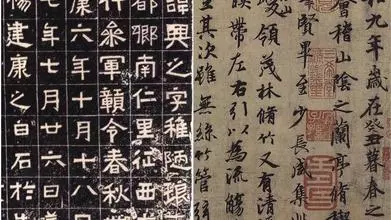 諱興之字稚陋琅
都鄉南仁里征西大
行參軍贛令春秋
康六年十月十八日
七年七月廿六日
楊建康之白石於
和九年歲在癸丑暮春
會稽山陰之蘭亭脩稧
羣賢畢至少長咸集
峻領茂林脩竹又有清
暎帶左右引以為流觴
坐其次雖無絲竹管